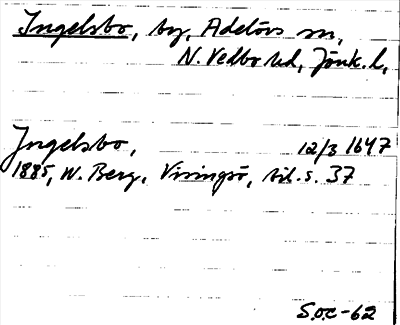 Ingelsbo, by, Adelövs sn,
N. Vedbo hd, Jönk. l,
Ingelsbo, 12/3 1647
1885, W. Berg, Visingsö, bil. s. 37
S.o.c-62